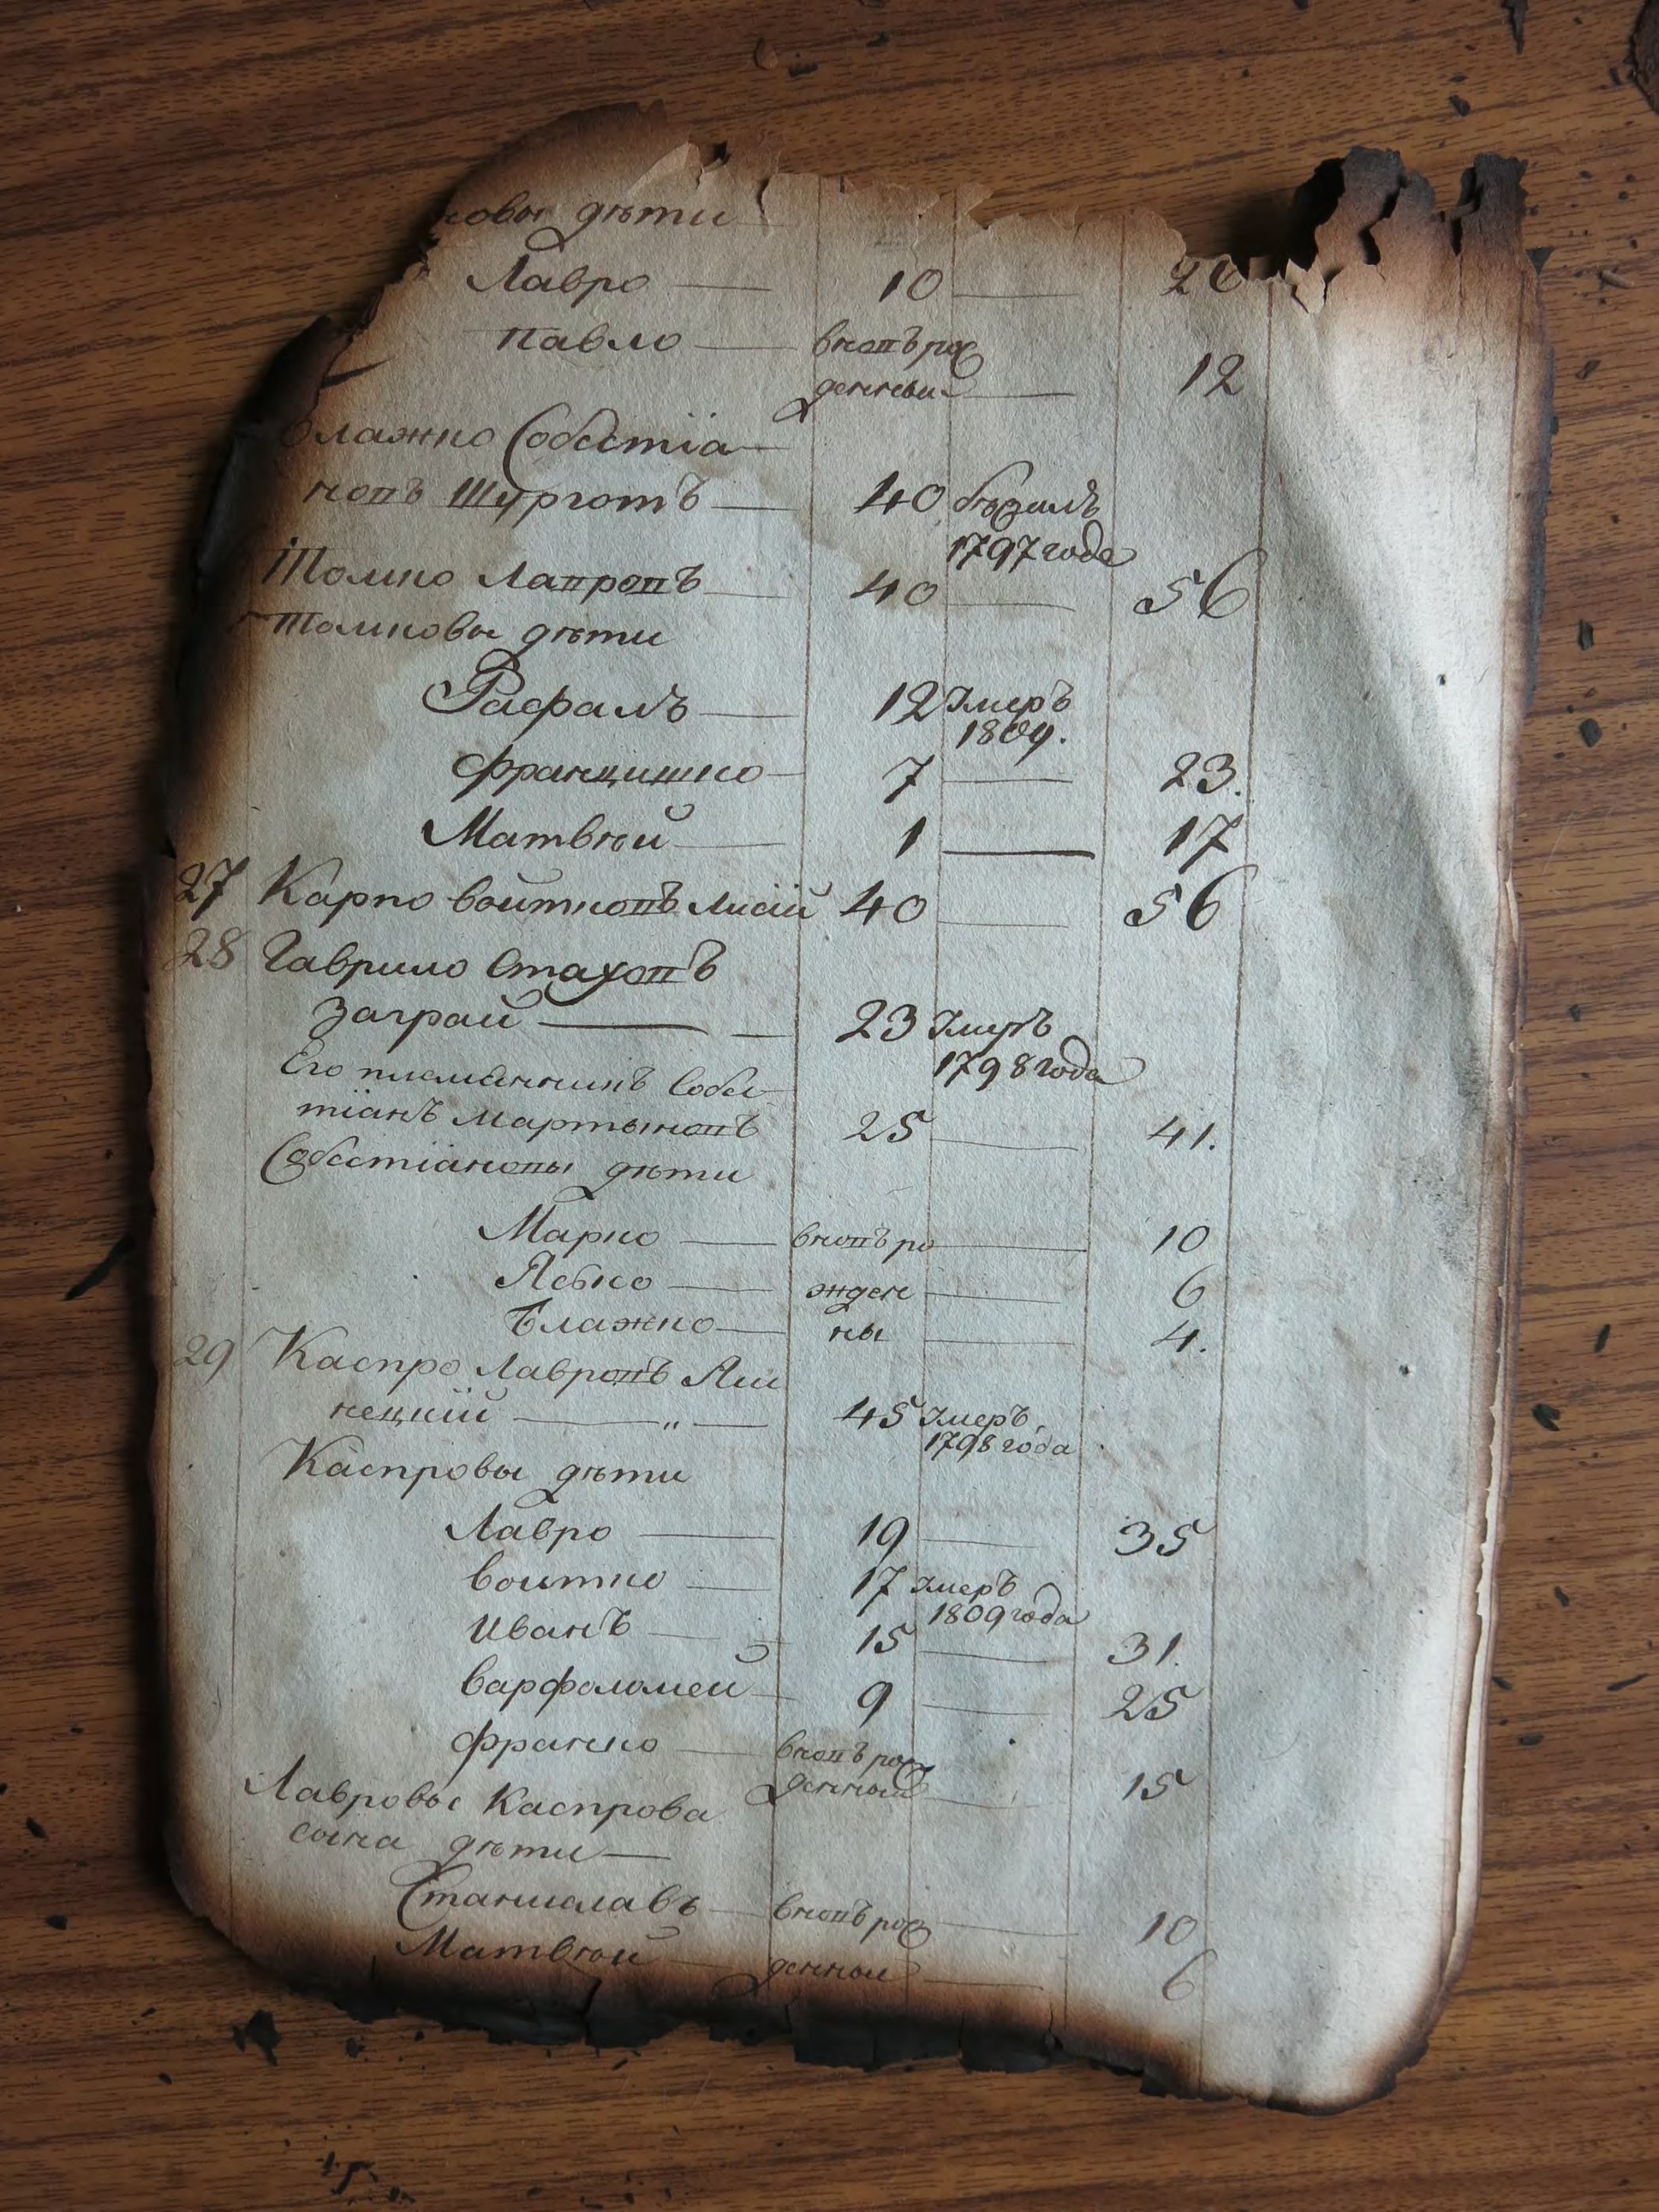 ковы дѣти
Лавро — 10 — 26
Павло — вновъ рож
денный — 12
Блажко Собестіа
новъ Шурготъ — 40 бѣжалъ
1797 года
Томко Лавровъ — 40 — 56
Томковы дѣти
Рафалъ — 12 Умеръ
1809.
Францишко — 7 — 23.
Матвѣй — 1 — 17
27 Карпо Войтковъ Лисій 40 — 56
28 Гаврило Стаховъ
Заграй — 23 Умеръ
1798 года
Его племянникъ Собес
тіанъ Мартыновъ 25 — 41.
Собестіановы дѣти
Марко — вновъ ро — 10
Яско — жден — 6
Блажко — ны — 4.
29 Каспро Лавровъ Яш
нецкій — „ — 45 Умеръ
1798 года
Каспровы дѣти
Лавро — 19 — 35
Войтко — 17 Умеръ
1809 года
Иванъ — 15 — 31.
Варфоломей — 9 — 25
Франко — вновъ рож
денный — 15
Лавровы Каспрова
сына дѣти —
Станиславъ — вновъ рож — 10
Матвѣй — денные — 6